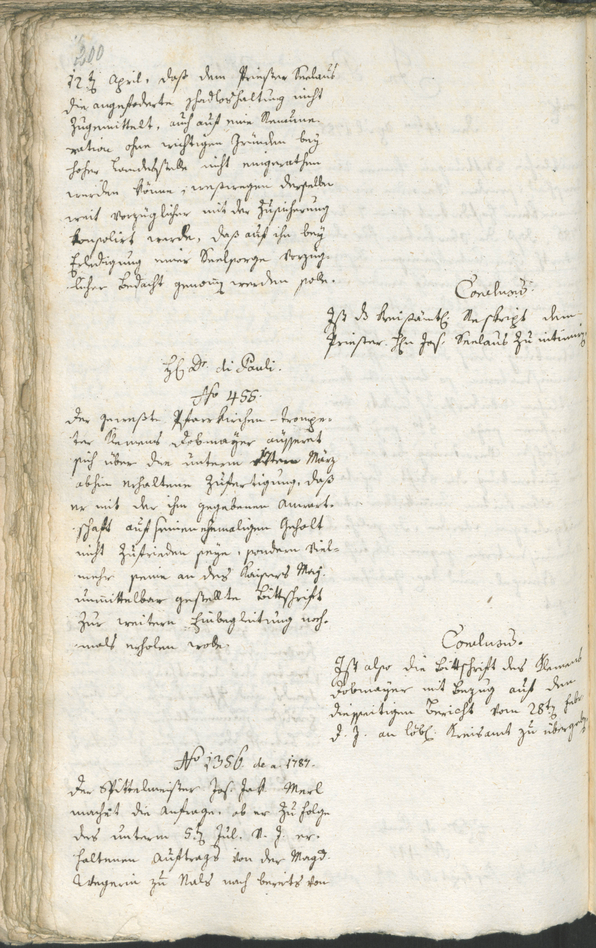 200
12t April, daß dem Priester Seelaus
die angeforderte Schadloshaltung nicht
zugemittelt, auch auf eine Remune-
ration ohne wichtigen Gründen bey
hoher Landesstelle nicht eingerathen
werden könne, weßwegen derselbe
weit vorzüglicher mit der Zusicherung
konsolirt werde, daß auf ihn bey
Erledigung einer Seelsorge vorzüg-
licher Bedacht genomen werden solle.
Conclusum.
Ist kreisämtl. Reskript dem
Priester Hn Jos. Seelaus zu intimiren
H. Dr. di Pauli.
No 455.
Der geweßte Pfarrkirchen-Trompe-
ter Klemens Dobmayer äusserat
sich über die unterm März
abhin erhaltene Zufertigung, daß
er mit der ihm gegebenen Anwart-
schaft auf seinen ehemaligen Gehalt
nicht zufrieden seye, sondern viel-
mehr seine an des Kaisers May.
unmittelbar gestellte Bittschrift
zur weitern Einbegleitung noch-
mals erholen wolle.
Conclusum.
Ist also die Bittschrift des Klemens
Dobmayer mit Bezug auf den
diesseitigen Bericht vom 28t Febr.
d. J. an löbl. Kreisamt zu übergeben
No 1356. de a. 1787.
Der Spittelmeister Jos. Jak. Merl
machet die Anfrage, ob er zufolge
des unterm 5t Jul. v. J. er-
haltenen Auftrags von der Magd.
Wegerin zu Nals nach bereits von